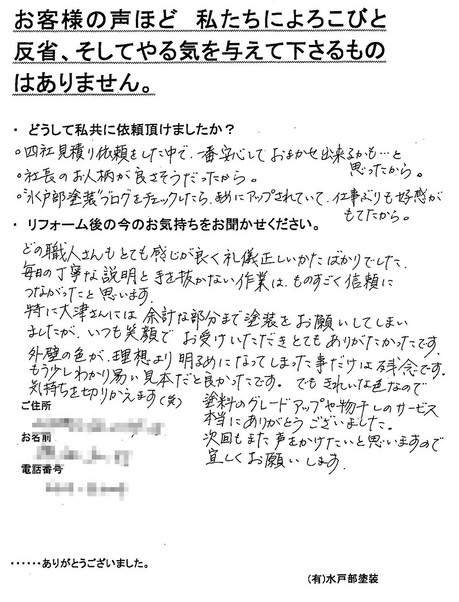 お客様の声ほど 私たちによろこびと
反省、そしてやる気を与えて下さるもの
はありません。
・ どうして私共に依頼頂けましたか？
○四社見積り依頼をした中で、一番安心しておまかせ出来るかも…と
思ったから。
○社長のお人柄が良さそうだったから。
○"水戸部塗装"ブログをチェックしたら、まめにアップされていて、仕事ぶりも好感が
もてたから。
・ リフォーム後の今のお気持ちをお聞かせください。
どの職人さんもとても感じが良く礼儀正しいかたばかりでした。
毎日の丁寧な説明と手を抜かない作業は、ものすごく信頼に
つながったと思います。
特に大津さんには、余計な部分まで塗装をお願いしてしまい
ましたが、いつも笑顔でお受けいただきとてもありがたかったです。
外壁の色が、理想より明るめになってしまった事だけは残念です。
もう少しわかり易い見本だと良かったです。でもきれいな色なので
気持ちを切りかえます(笑)
塗料のグレードアップや物干しのサービス
本当にありがとうございました。
次回もまた声をかけたいと思いますので
宜しくお願いします。
ご住所
お名前
電話番号
・・・・・・ありがとうございました。
(有)水戸部塗装